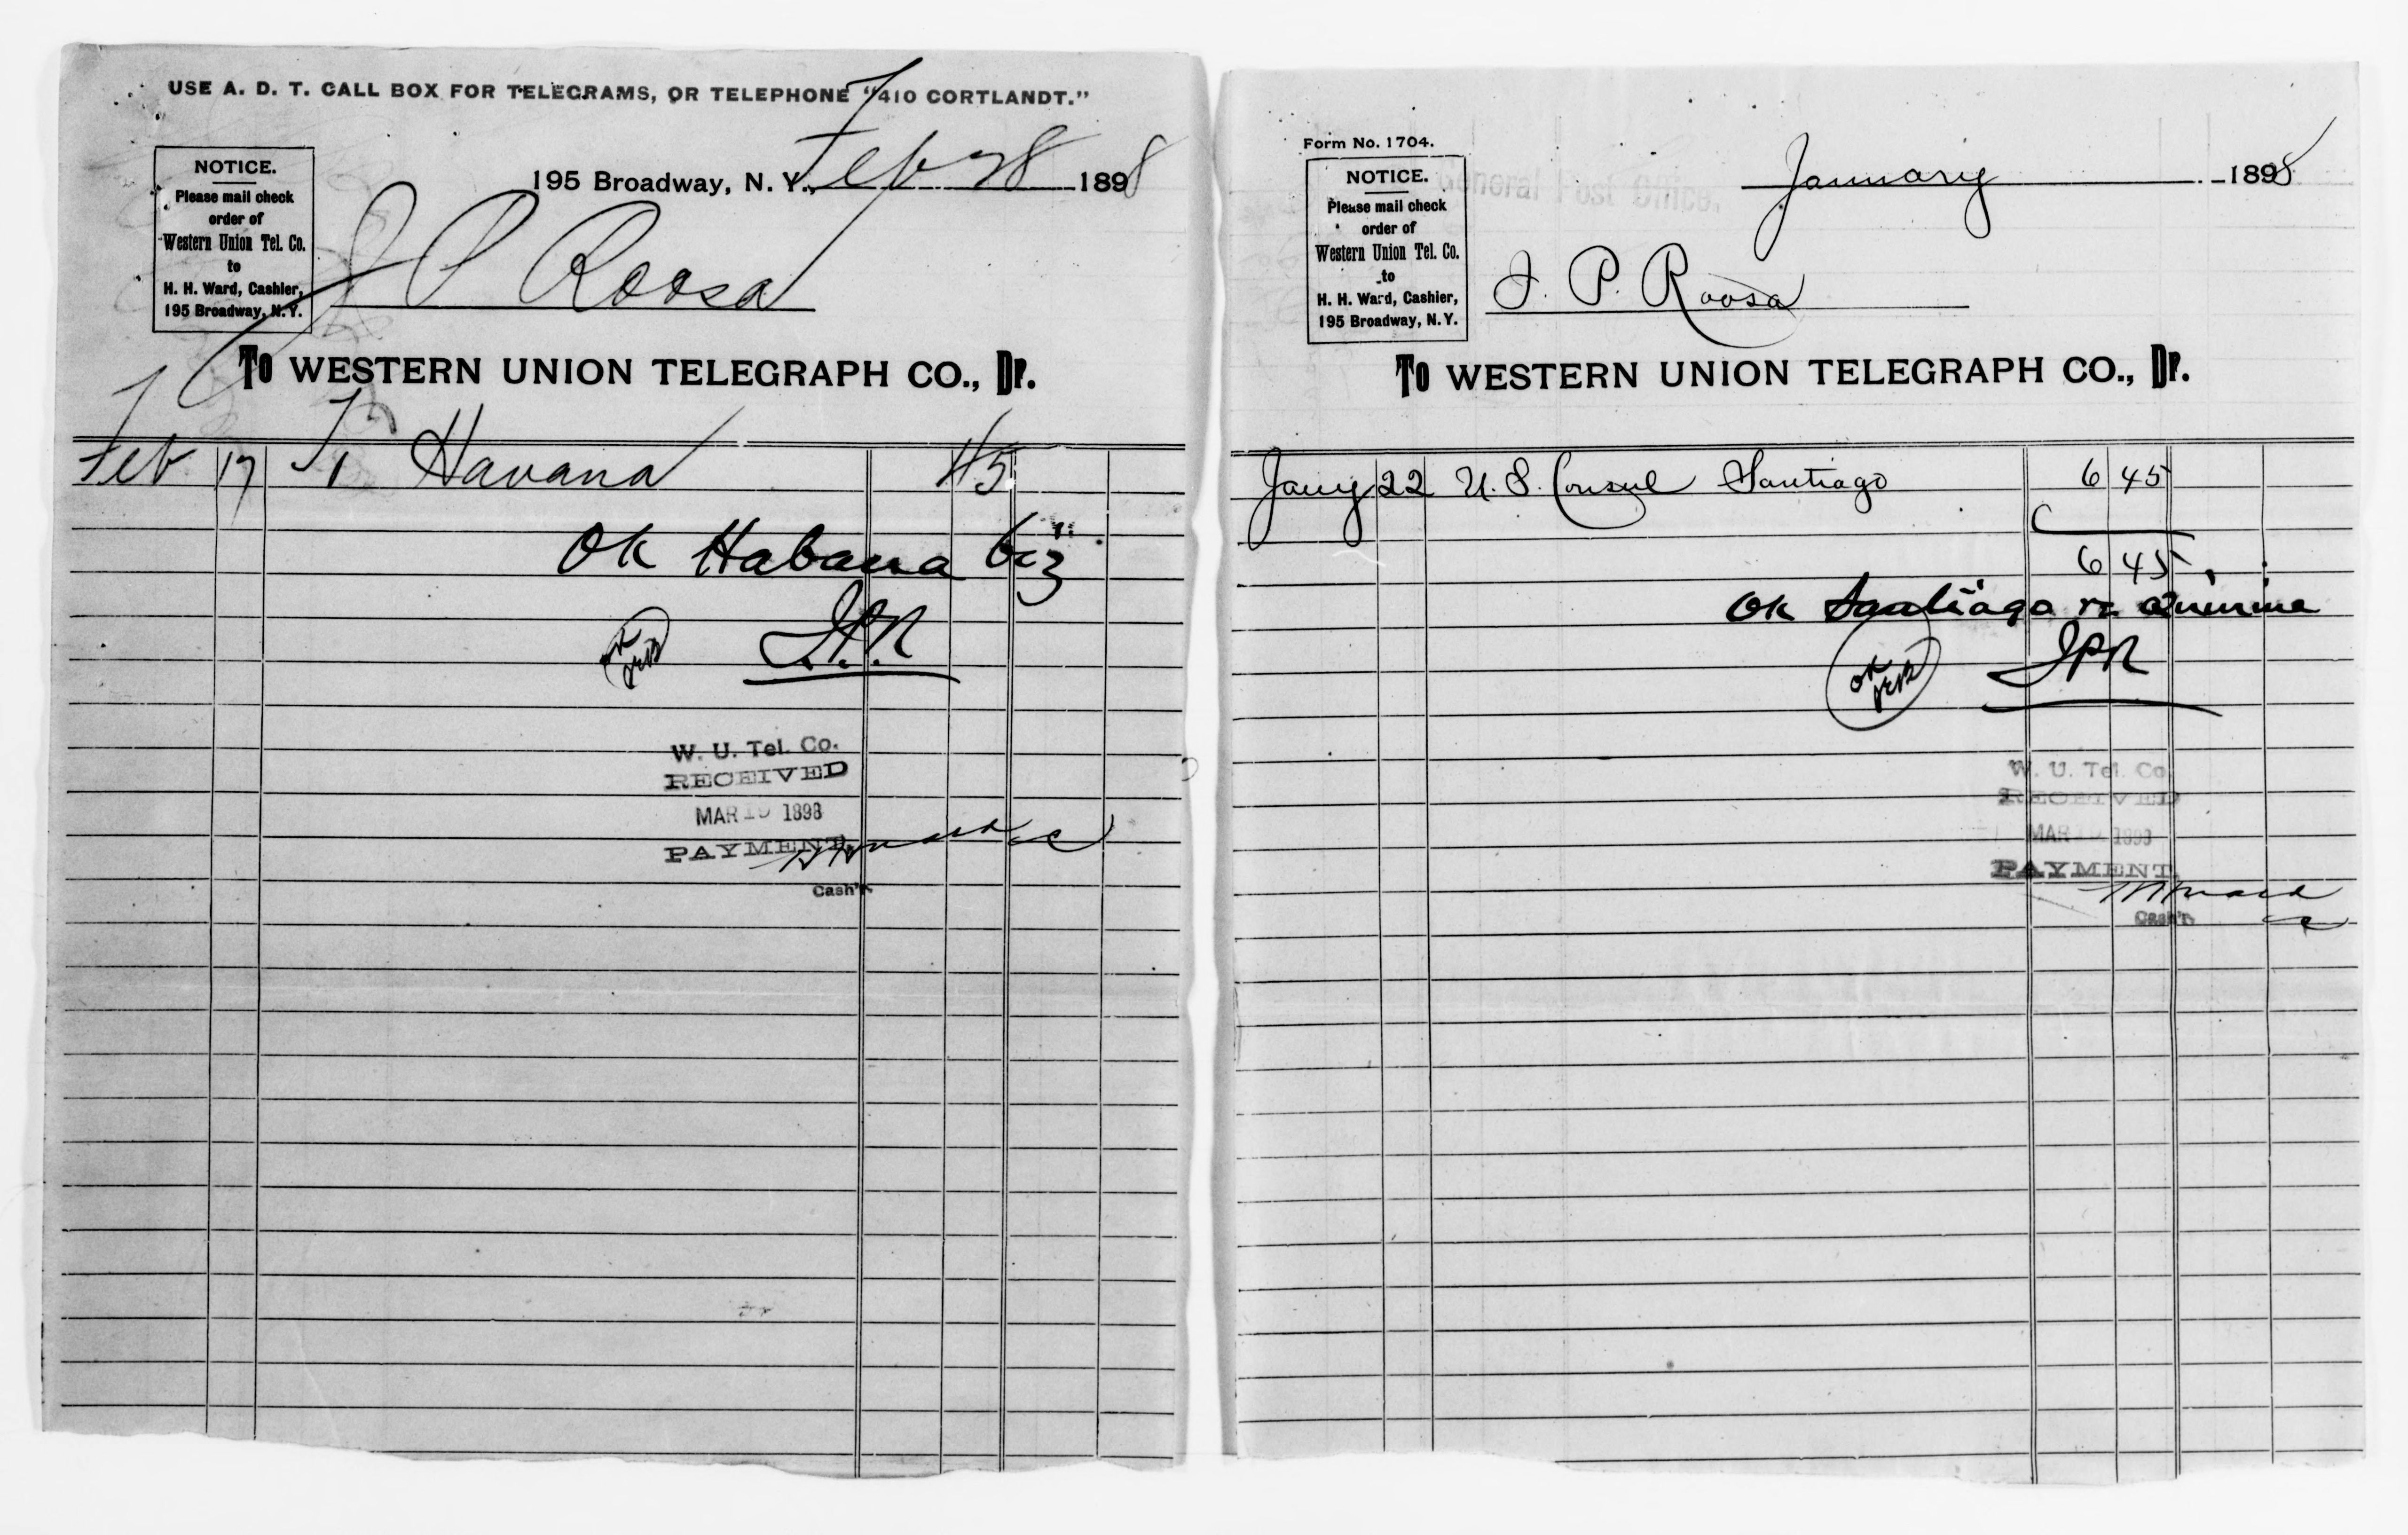 USE A. D. T. CALL BOX FOR TELEGRAMS, OR TELEPHONE "410 CORTLANDT."
NOTICE.
Please mail check
order of
Western Union Tel. Co.
to
H. H. Ward, Cashier,
195 Broadway, N.Y.
195 Broadway, N. Y., Feb 28 1898
J P Roosa
To WESTERN UNION TELEGRAPH CO., Dr.
Feb 17 Havana 45
OK Habana biz
J.P.R
OK
W. U. Tel. Co.
RECEIVED
MAR 1898
PAYMENT
Cash'r.
Form No. 1704.
General Post Office,
NOTICE.
Please mail check
order of
Western Union Tel. Co.
to
H. H. Ward, Cashier,
195 Broadway, N.Y.
January 1898
J. P. Roosa
To WESTERN UNION TELEGRAPH CO., Dr.
Jany 22 U. S. Consul Santiago 6 45
6 45
OK Santiago re Quinine
JPR
OK
W. U. Tel. Co.
RECEIVED
MAR 1898
PAYMENT
Cash'r.